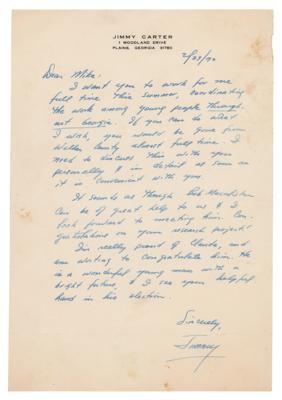 JIMMY CARTER
1 WOODLAND DRIVE
PLAINS, GEORGIA 31780
2/23/70
Dear Mike:
I want you to work for me
full time this summer, coordinating
the work among young people through-
out Georgia. If you can do what
I wish, you would be gone from
County almost full time. I
need to discuss this with you
personally & in detail as soon as
it is convenient with you.
It sounds as though Bob
can be of great help to us & I
look forward to meeting him. Con-
gratulations on your research project!
I'm really proud of and
am writing to congratulate him. He
is a wonderful young man with a
bright future, & I see your helpful
hand in his election.
Sincerely,
Jimmy